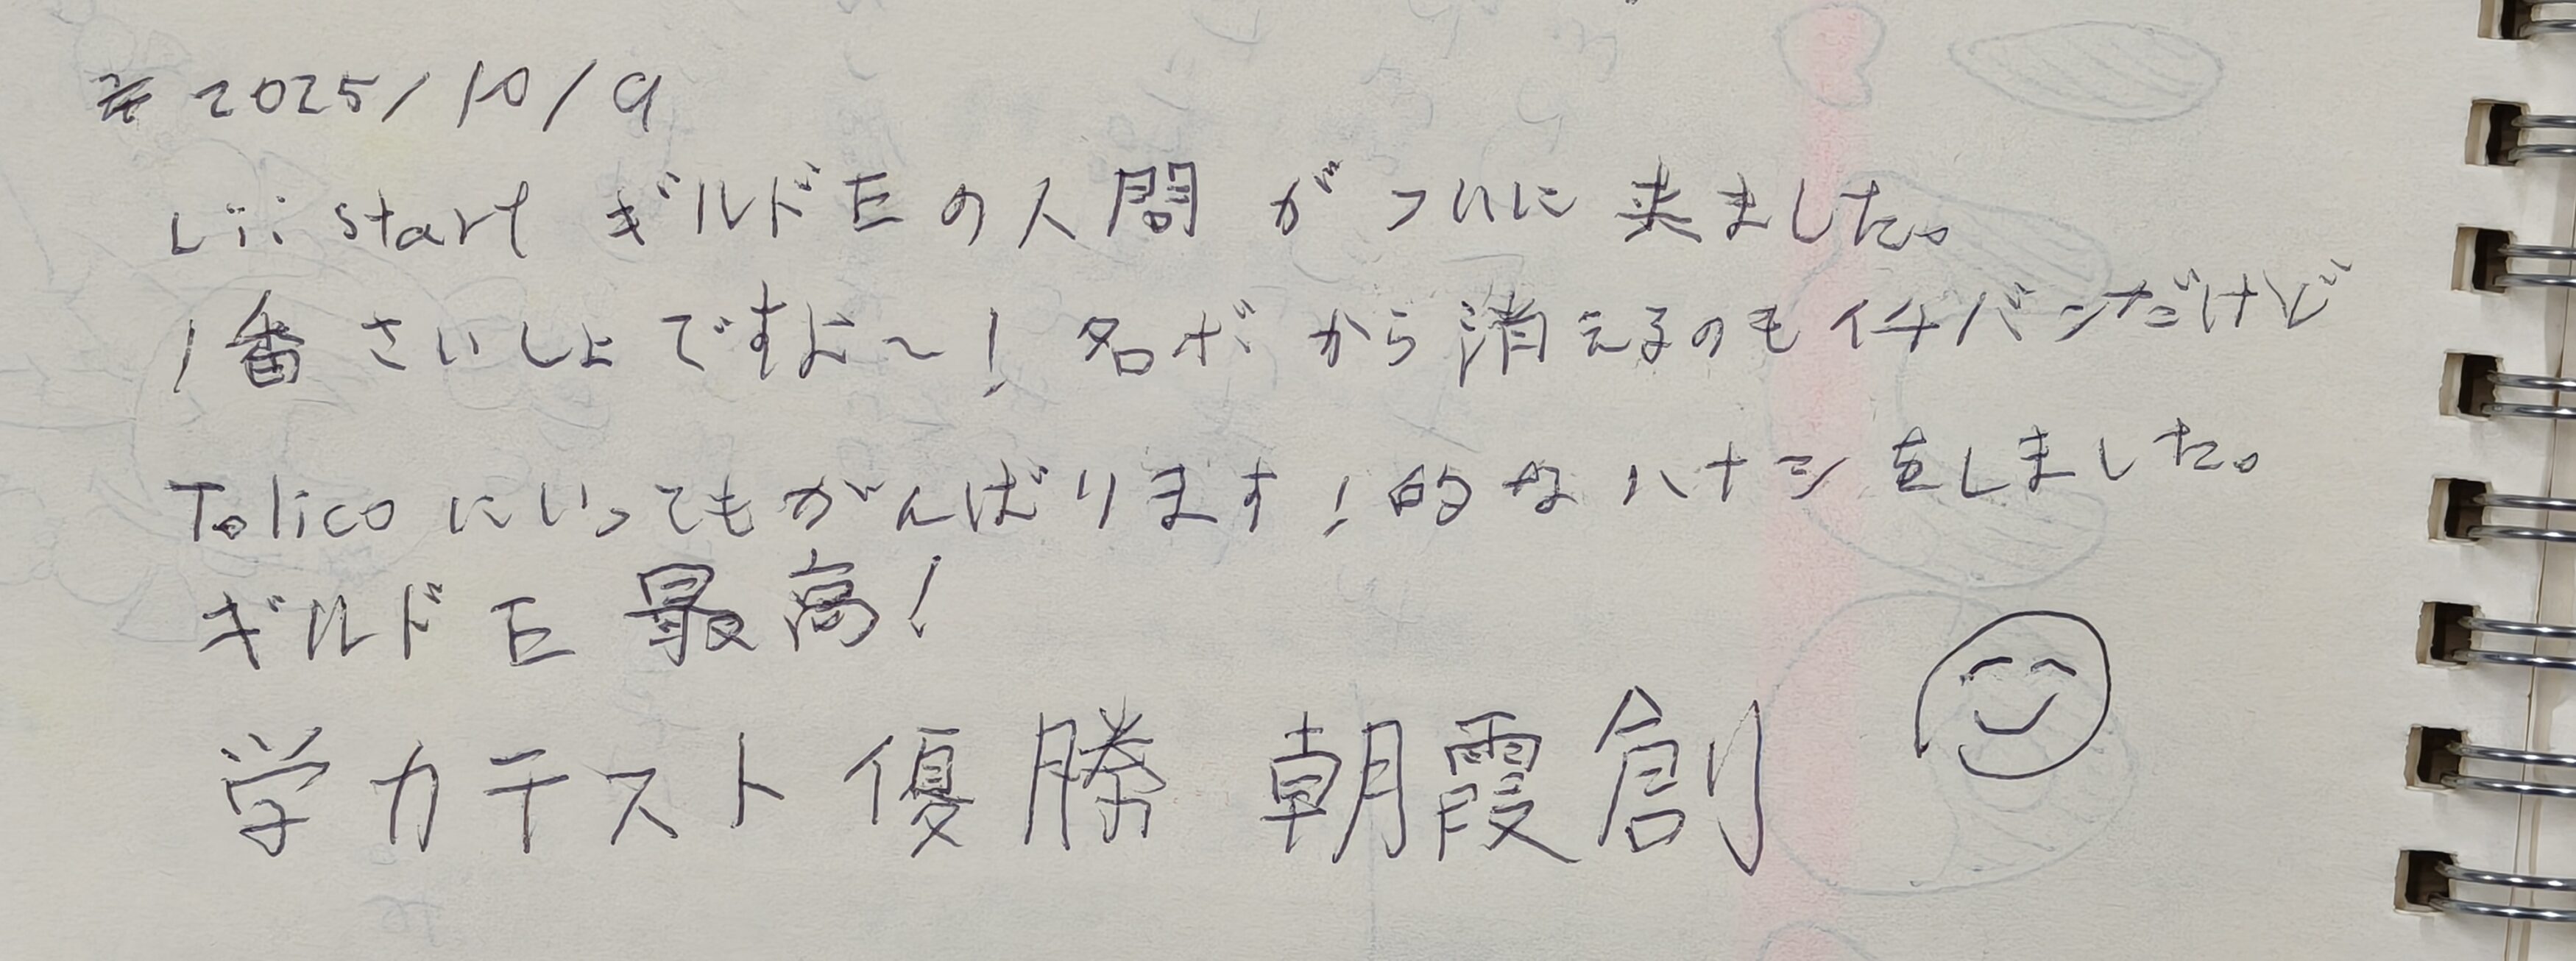 # 2025/10/9
Lii start ギルドEの人間がついに来ました。
1番さいしょですよ〜！名ボから消えるのもイチバンだけど
Tolicoにいってもがんばります！的なハナシをしました。
ギルドE最高！
学力テスト優勝 朝霞創